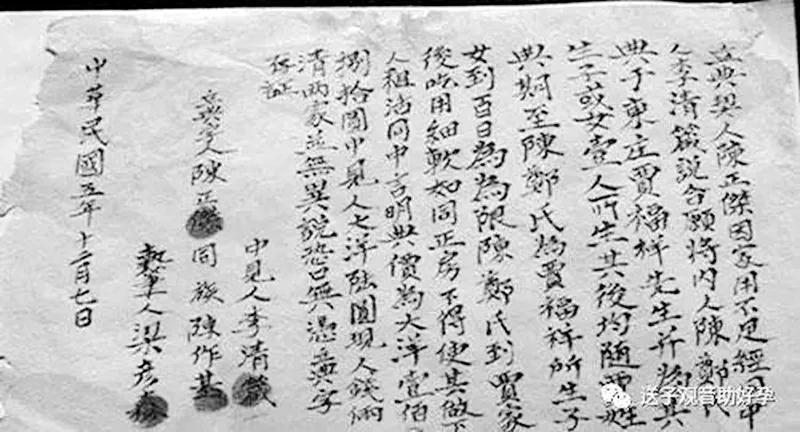 立典契人陳正傑因家用不足經同中
人李清箴說合願將內人陳鄭氏
典于東庄賈福祥先生并將其
生子或女壹人所生其後均隨賈姓
典期至陳鄭氏為賈福祥所生子
女到百日為為限陳鄭氏到賈家
後吃用細軟如同正房不得使其做下
人租沽同中言明典價為大洋壹佰
捌拾圓中見人大洋陸圓現人錢兩
清兩家並無異說恐口無憑立典字
存証
中見人李清箴
立典字人陳正傑 同族陳作基
執筆人梁彥森
中華民國五年十二月七日
送子观音助好孕